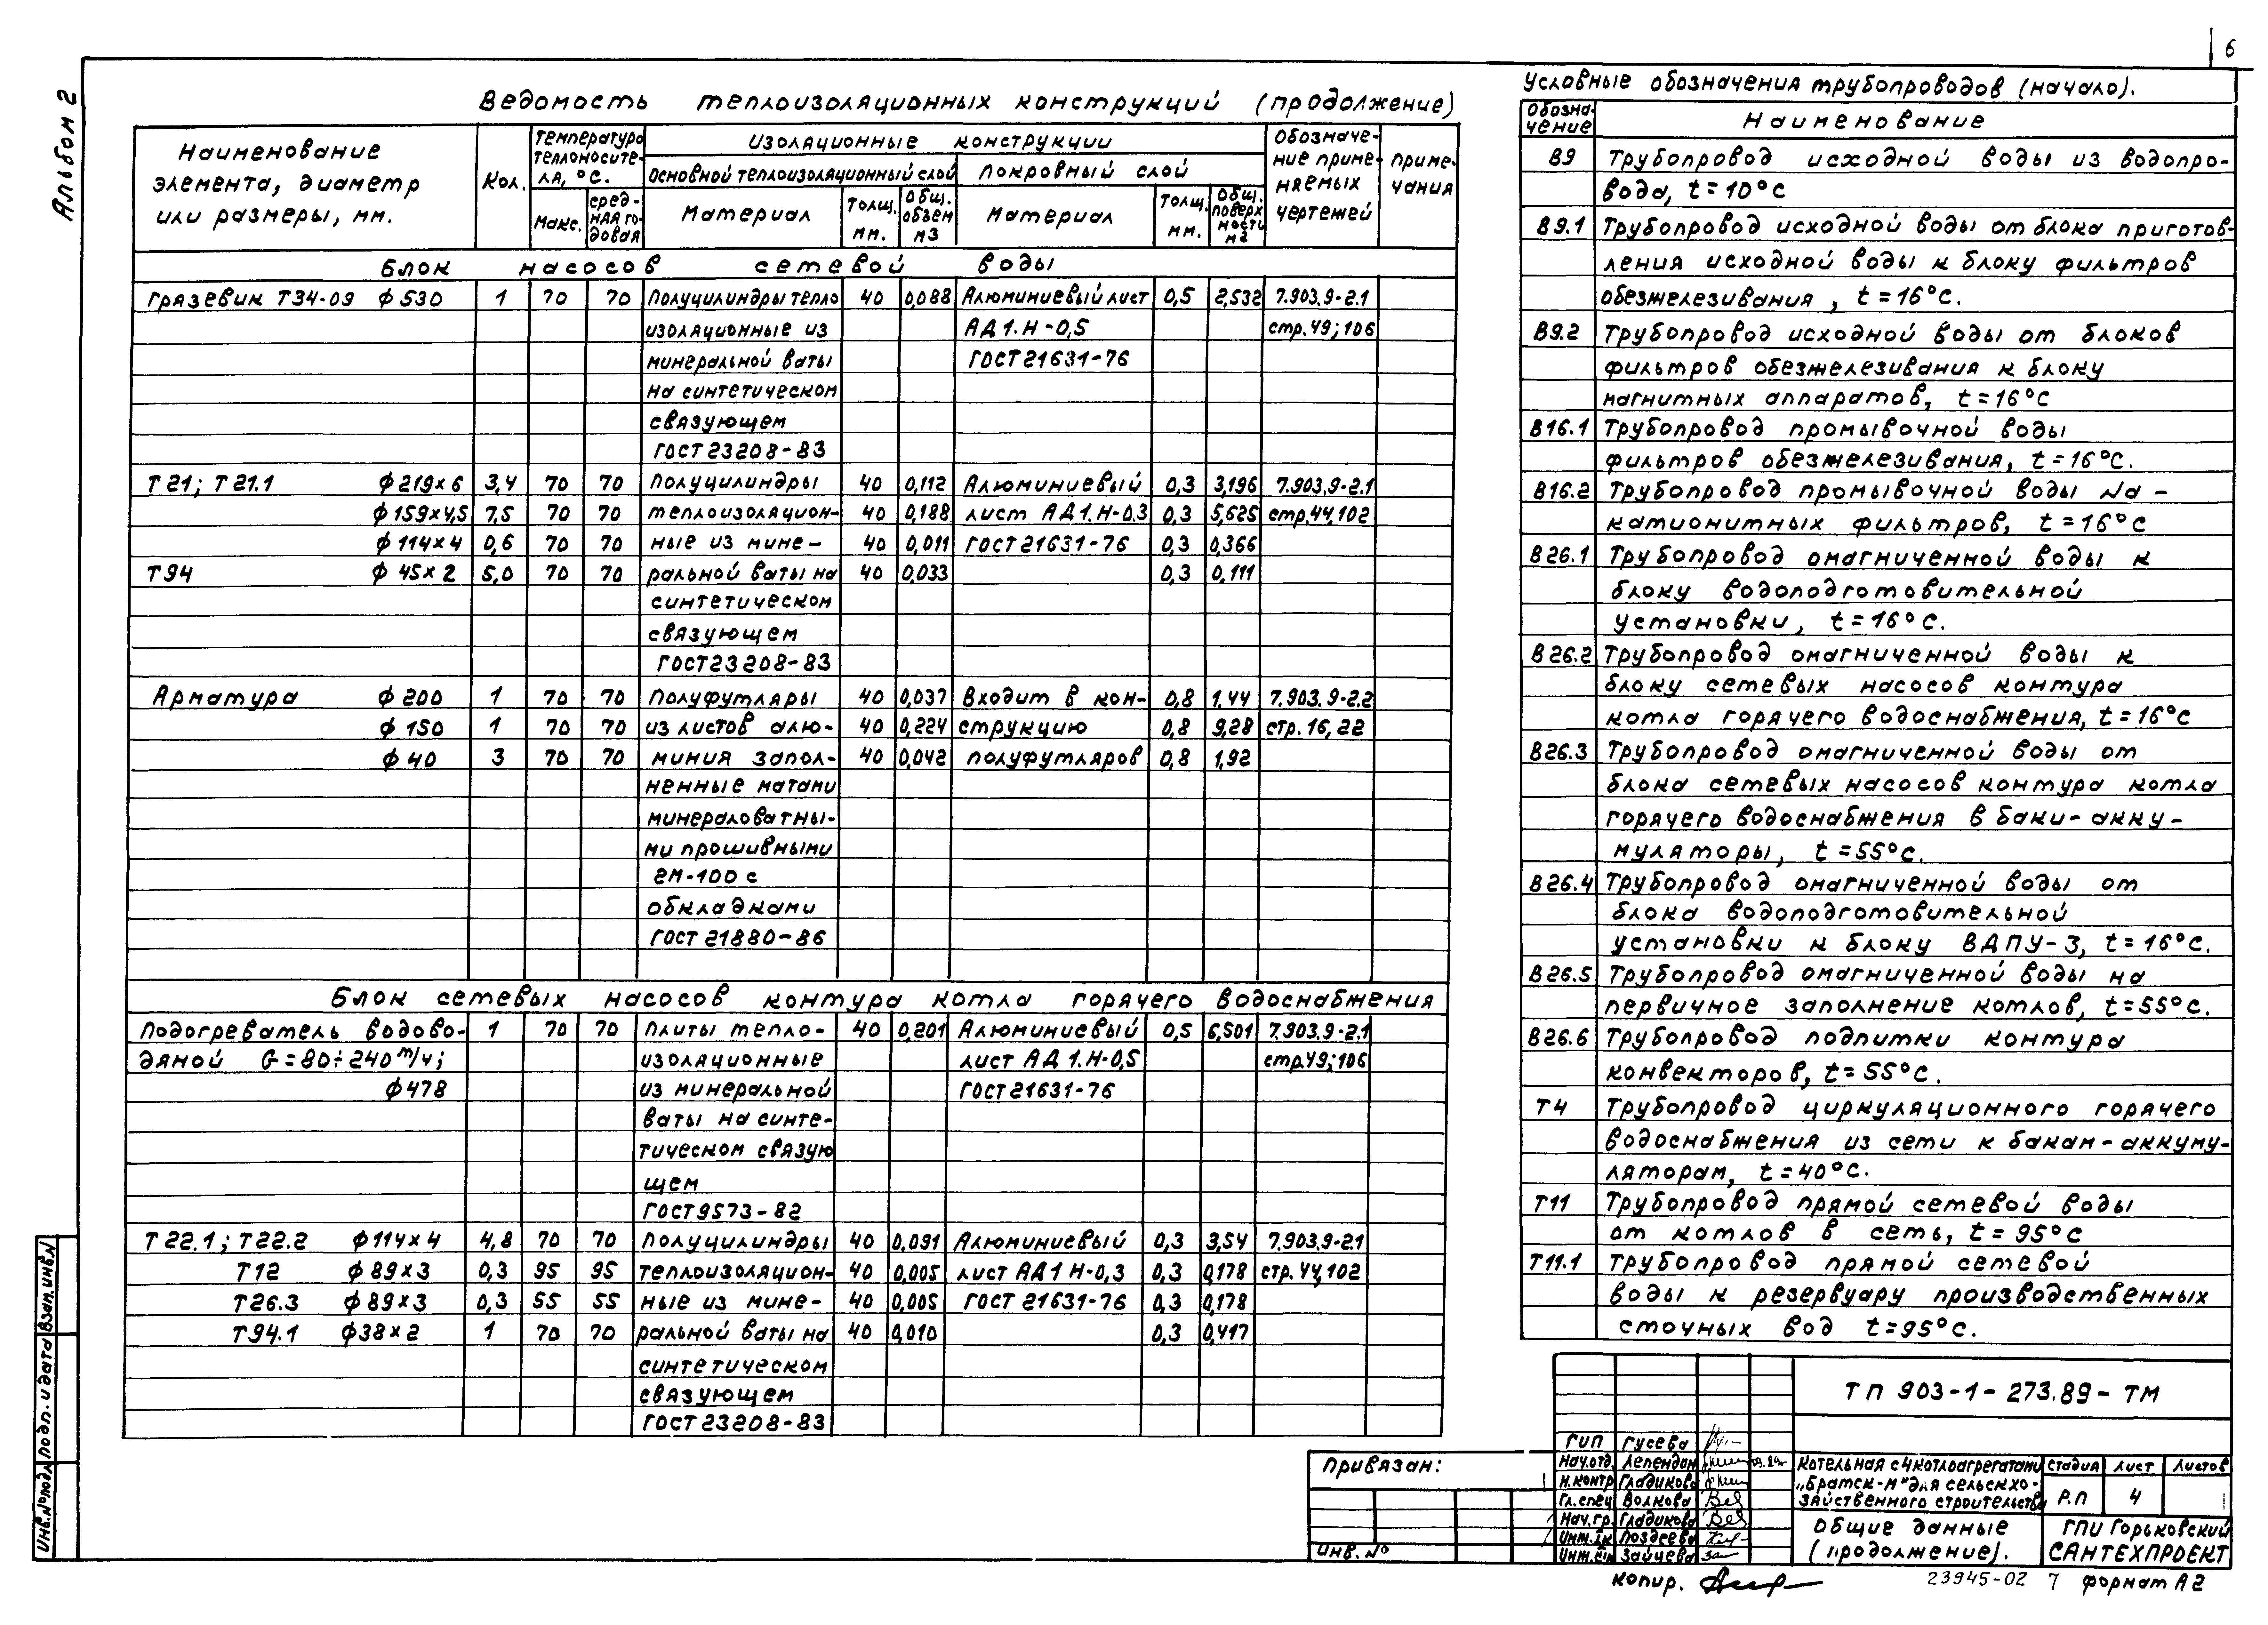 6
Альбом 2
Ведомость теплоизоляционных конструкций (продолжение)
Наименование элемента, диаметр или размеры, мм. | Кол. | Температура теплоносителя, °С. | Изоляционные конструкции | Обозначение применяемых чертежей | Примечания
Основной теплоизоляционный слой | Покровный слой
Макс. | Среднягодовая | Материал | Толщ. мм. | Общ. объем м3 | Материал | Толщ. мм. | Общ. поверхности м2
Блок насосов сетевой воды
Грязевик Т34-09 ф530 | 1 | 70 | 70 | Полуцилиндры тепло | 40 | 0,088 | Алюминиевый лист | 0,5 | 2,532 | 7.903.9-2.1
изоляционные из | АД1.Н-0,5 | стр.49; 106
минеральной ваты | ГОСТ 21631-76
на синтетическом
связующем
ГОСТ 23208-83
Т21; Т21.1 ф219×6 | 3,4 | 70 | 70 | Полуцилиндры | 40 | 0,112 | Алюминиевый | 0,3 | 3,196 | 7.903.9-2.1
ф159×4,5 | 7,5 | 70 | 70 | теплоизоляцион- | 40 | 0,188 | лист АД1.Н-0,3 | 0,3 | 5,625 | стр.44,102
ф114×4 | 0,6 | 70 | 70 | ные из мине- | 40 | 0,011 | ГОСТ 21631-76 | 0,3 | 0,366
Т94 ф45×2 | 5,0 | 70 | 70 | ральной ваты на | 40 | 0,033 | 0,3 | 0,111
синтетическом
связующем
ГОСТ 23208-83
Арматура ф200 | 1 | 70 | 70 | Полуфутляры | 40 | 0,037 | Входит в кон- | 0,8 | 1,44 | 7.903.9-2.2
ф150 | 1 | 70 | 70 | из листов алю- | 40 | 0,224 | струкцию | 0,8 | 9,28 | стр.16, 22
ф40 | 3 | 70 | 70 | миния запол- | 40 | 0,042 | полуфутляров | 0,8 | 1,92
ненные матами
минераловатны-
ми прошивными
2М-100 с
обкладками
ГОСТ 21880-86
Блок сетевых насосов контура котла горячего водоснабжения
Подогреватель водово- | 1 | 70 | 70 | Плиты тепло- | 40 | 0,201 | Алюминиевый | 0,5 | 6,501 | 7.903.9-2.1
дяной G=80÷240 т/ч; | изоляционные | лист АД1.Н-0,5 | стр.49; 106
ф478 | из минеральной | ГОСТ 21631-76
ваты на синте-
тическом связую
щем
ГОСТ 9573-82
Т22.1; Т22.2 ф114×4 | 4,8 | 70 | 70 | Полуцилиндры | 40 | 0,091 | Алюминиевый | 0,3 | 3,54 | 7.903.9-2.1
Т12 ф89×3 | 0,3 | 95 | 95 | теплоизоляцион- | 40 | 0,005 | лист АД1 Н-0,3 | 0,3 | 0,178 | стр.44,102
Т26.3 ф89×3 | 0,3 | 55 | 55 | ные из мине- | 40 | 0,005 | ГОСТ 21631-76 | 0,3 | 0,178
Т94.1 ф38×2 | 1 | 70 | 70 | ральной ваты на | 40 | 0,010 | 0,3 | 0,417
синтетическом
связующем
ГОСТ 23208-83
Условные обозначения трубопроводов (начало).
Обозначение | Наименование
В9 | Трубопровод исходной воды из водопро-
вода, t=10°С
В9.1 | Трубопровод исходной воды от блока приготов-
ления исходной воды к блоку фильтров
обезжелезивания, t=16°С.
В9.2 | Трубопровод исходной воды от блоков
фильтров обезжелезивания к блоку
магнитных аппаратов, t=16°С
В16.1 | Трубопровод промывочной воды
фильтров обезжелезивания, t=16°С.
В16.2 | Трубопровод промывочной воды Na-
катионитных фильтров, t=16°С
В26.1 | Трубопровод омагниченной воды к
блоку водоподготовительной
установки, t=16°С.
В26.2 | Трубопровод омагниченной воды к
блоку сетевых насосов контура
котла горячего водоснабжения, t=16°С
В26.3 | Трубопровод омагниченной воды от
блока сетевых насосов контура котла
горячего водоснабжения в баки-акку-
муляторы, t=55°С.
В26.4 | Трубопровод омагниченной воды от
блока водоподготовительной
установки к блоку ВДПУ-3, t=16°С.
В26.5 | Трубопровод омагниченной воды на
первичное заполнение котлов, t=55°С.
В26.6 | Трубопровод подпитки контура
конвекторов, t=55°С.
Т4 | Трубопровод циркуляционного горячего
водоснабжения из сети к бакам-аккуму-
ляторам, t=40°С.
Т11 | Трубопровод прямой сетевой воды
от котлов в сеть, t=95°С
Т11.1 | Трубопровод прямой сетевой
воды к резервуару производственных
сточных вод t=95°С.
ТП 903-1-273.89-ТМ
ГИП Гусева
Нач.отд. Лепендин
Н.контр Гладикова
Гл.спец Волкова
Нач.гр. Гладикова
Инж.Iк Поздеева
Инж.IIк Зайцева
Котельная с 4 котлоагрегатами
„Братск-М" для сельскохо-
зяйственного строительства
Стадия | Лист | Листов
Р.П | 4
Общие данные
(продолжение).
ГПИ Горьковский
САНТЕХПРОЕКТ
Привязан:
Инв. №
Инв.№подл. | Подп. и дата | Взам.инв.№
Копир.
23945-02 7 формат А2